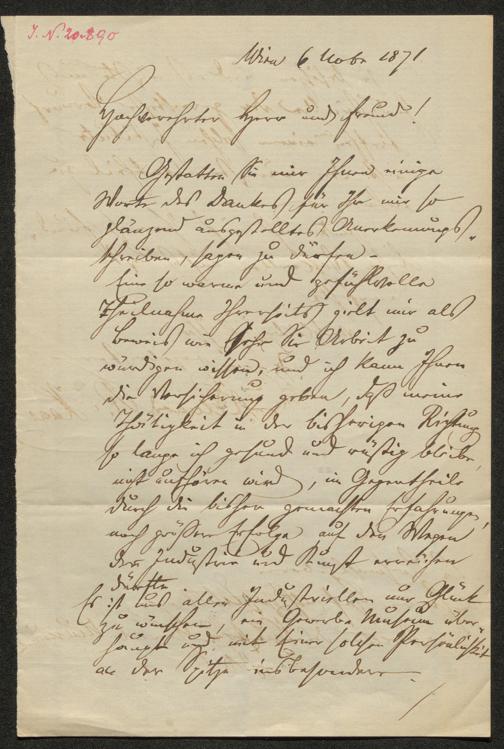 J. N. 20.890
Wien 6 Novbr 1871
Hochverehrter Herr und Freund!
Gestatten Sie mir Ihnen einige
Worte des Dankes für Ihr mir so
glänzend ausgestelltes Anerkennungs-
schreiben, sagen zu dürfen –
Eine so warme und gefühlvolle
Theilnahme Ihrerseits gielt mir als
Beweis wie sehr Sie Arbeit zu
würdigen wissen, und ich kann Ihnen
die Versicherung geben, daß meine
Thätigkeit in der bisherigen Richtung
so lange ich gesund und rüstig bleibe,
nicht aufhören wird, im Gegentheile
durch die bisher gemachten Erfahrungen,
noch größere Erfolge auf den Wegen
der Industrie und Kunst erreichen
dürfte
Es ist uns allen Industriellen nur Glück
zu wünschen, ein Gewerbe Museum über-
haupt und mit einer solchen Persönlichkeit
an der Spitze insbesondere